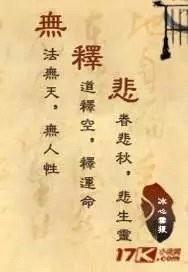 悲
眷悲秋，悲生靈
釋
道釋空，釋運命
無
法無天，無人性
冰心雲
17K
小说网